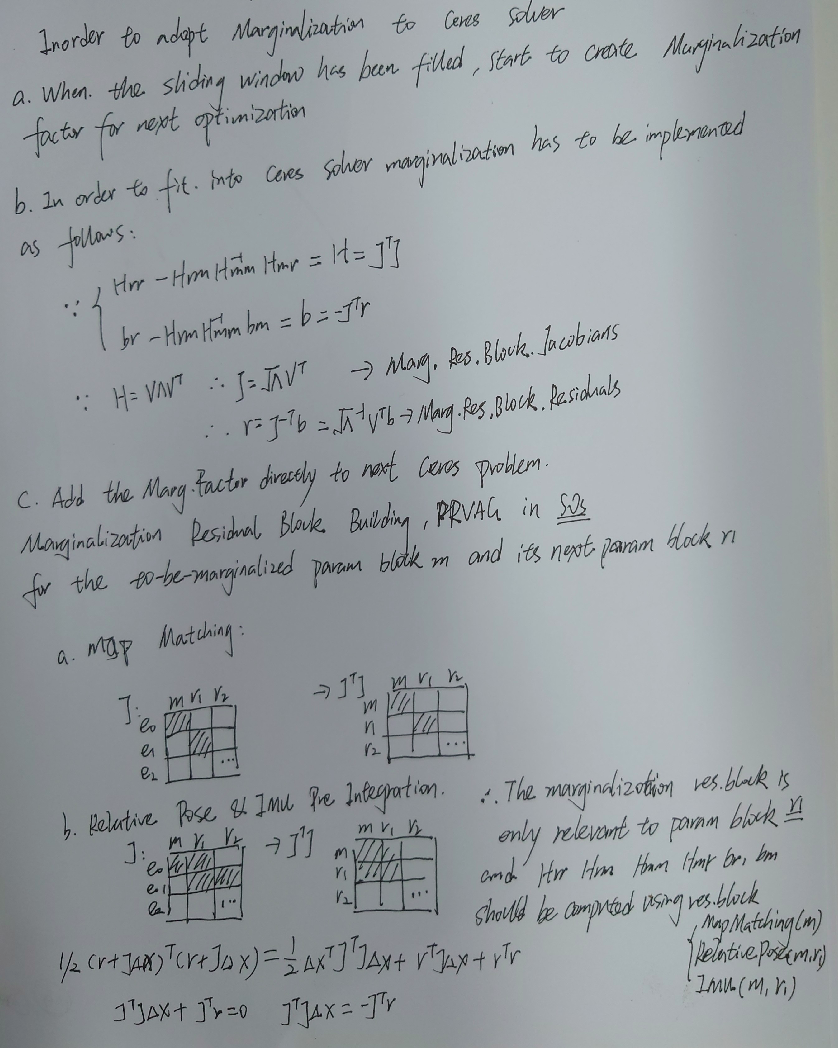 Inorder to adapt Marginalization to Ceres solver
a. When. the sliding window has been filled, start to create Marginalization
factor for next optimization
b. In order to fit. into Ceres solver marginalization has to be implemented
as follows:
∵ { Hrr - Hrm Hmm⁻¹ Hmr = H = JᵀJ
br - Hrm Hmm⁻¹ bm = b = -Jᵀr
∵ H = VΛVᵀ ∴ J = √Λ Vᵀ → Marg. Res. Block. Jacobians
∴ r = J⁻ᵀb = √Λ⁻¹Vᵀb → Marg. Res. Block. Residuals
C. Add the Marg. Factor directly to next Ceres problem.
Marginalization Residual Block Building, PRVAG in SO3
for the to-be-marginalized param block m and its next param block r1
a. Map Matching:
J: m r1 r2
e0
e1
e2
...
⇒ JᵀJ m r1 r2
m
r1
r2
...
b. Relative Pose & Imu Pre Integration.
J: m r1 r2
e0
e1
e2
...
→ JᵀJ m r1 r2
m
r1
r2
...
∴ The marginalization res. block is
only relevant to param block r1
and Hrr Hrm Hmm Hmr br, bm
should be computed using res. block
{ MapMatching(m)
RelativePose(m, r1)
Imu(m, r1)
1/2 (r+JΔx)ᵀ(r+JΔx) = 1/2 ΔxᵀJᵀJΔx + rᵀJΔx + rᵀr
JᵀJΔx + Jᵀr = 0 JᵀJΔx = -Jᵀr